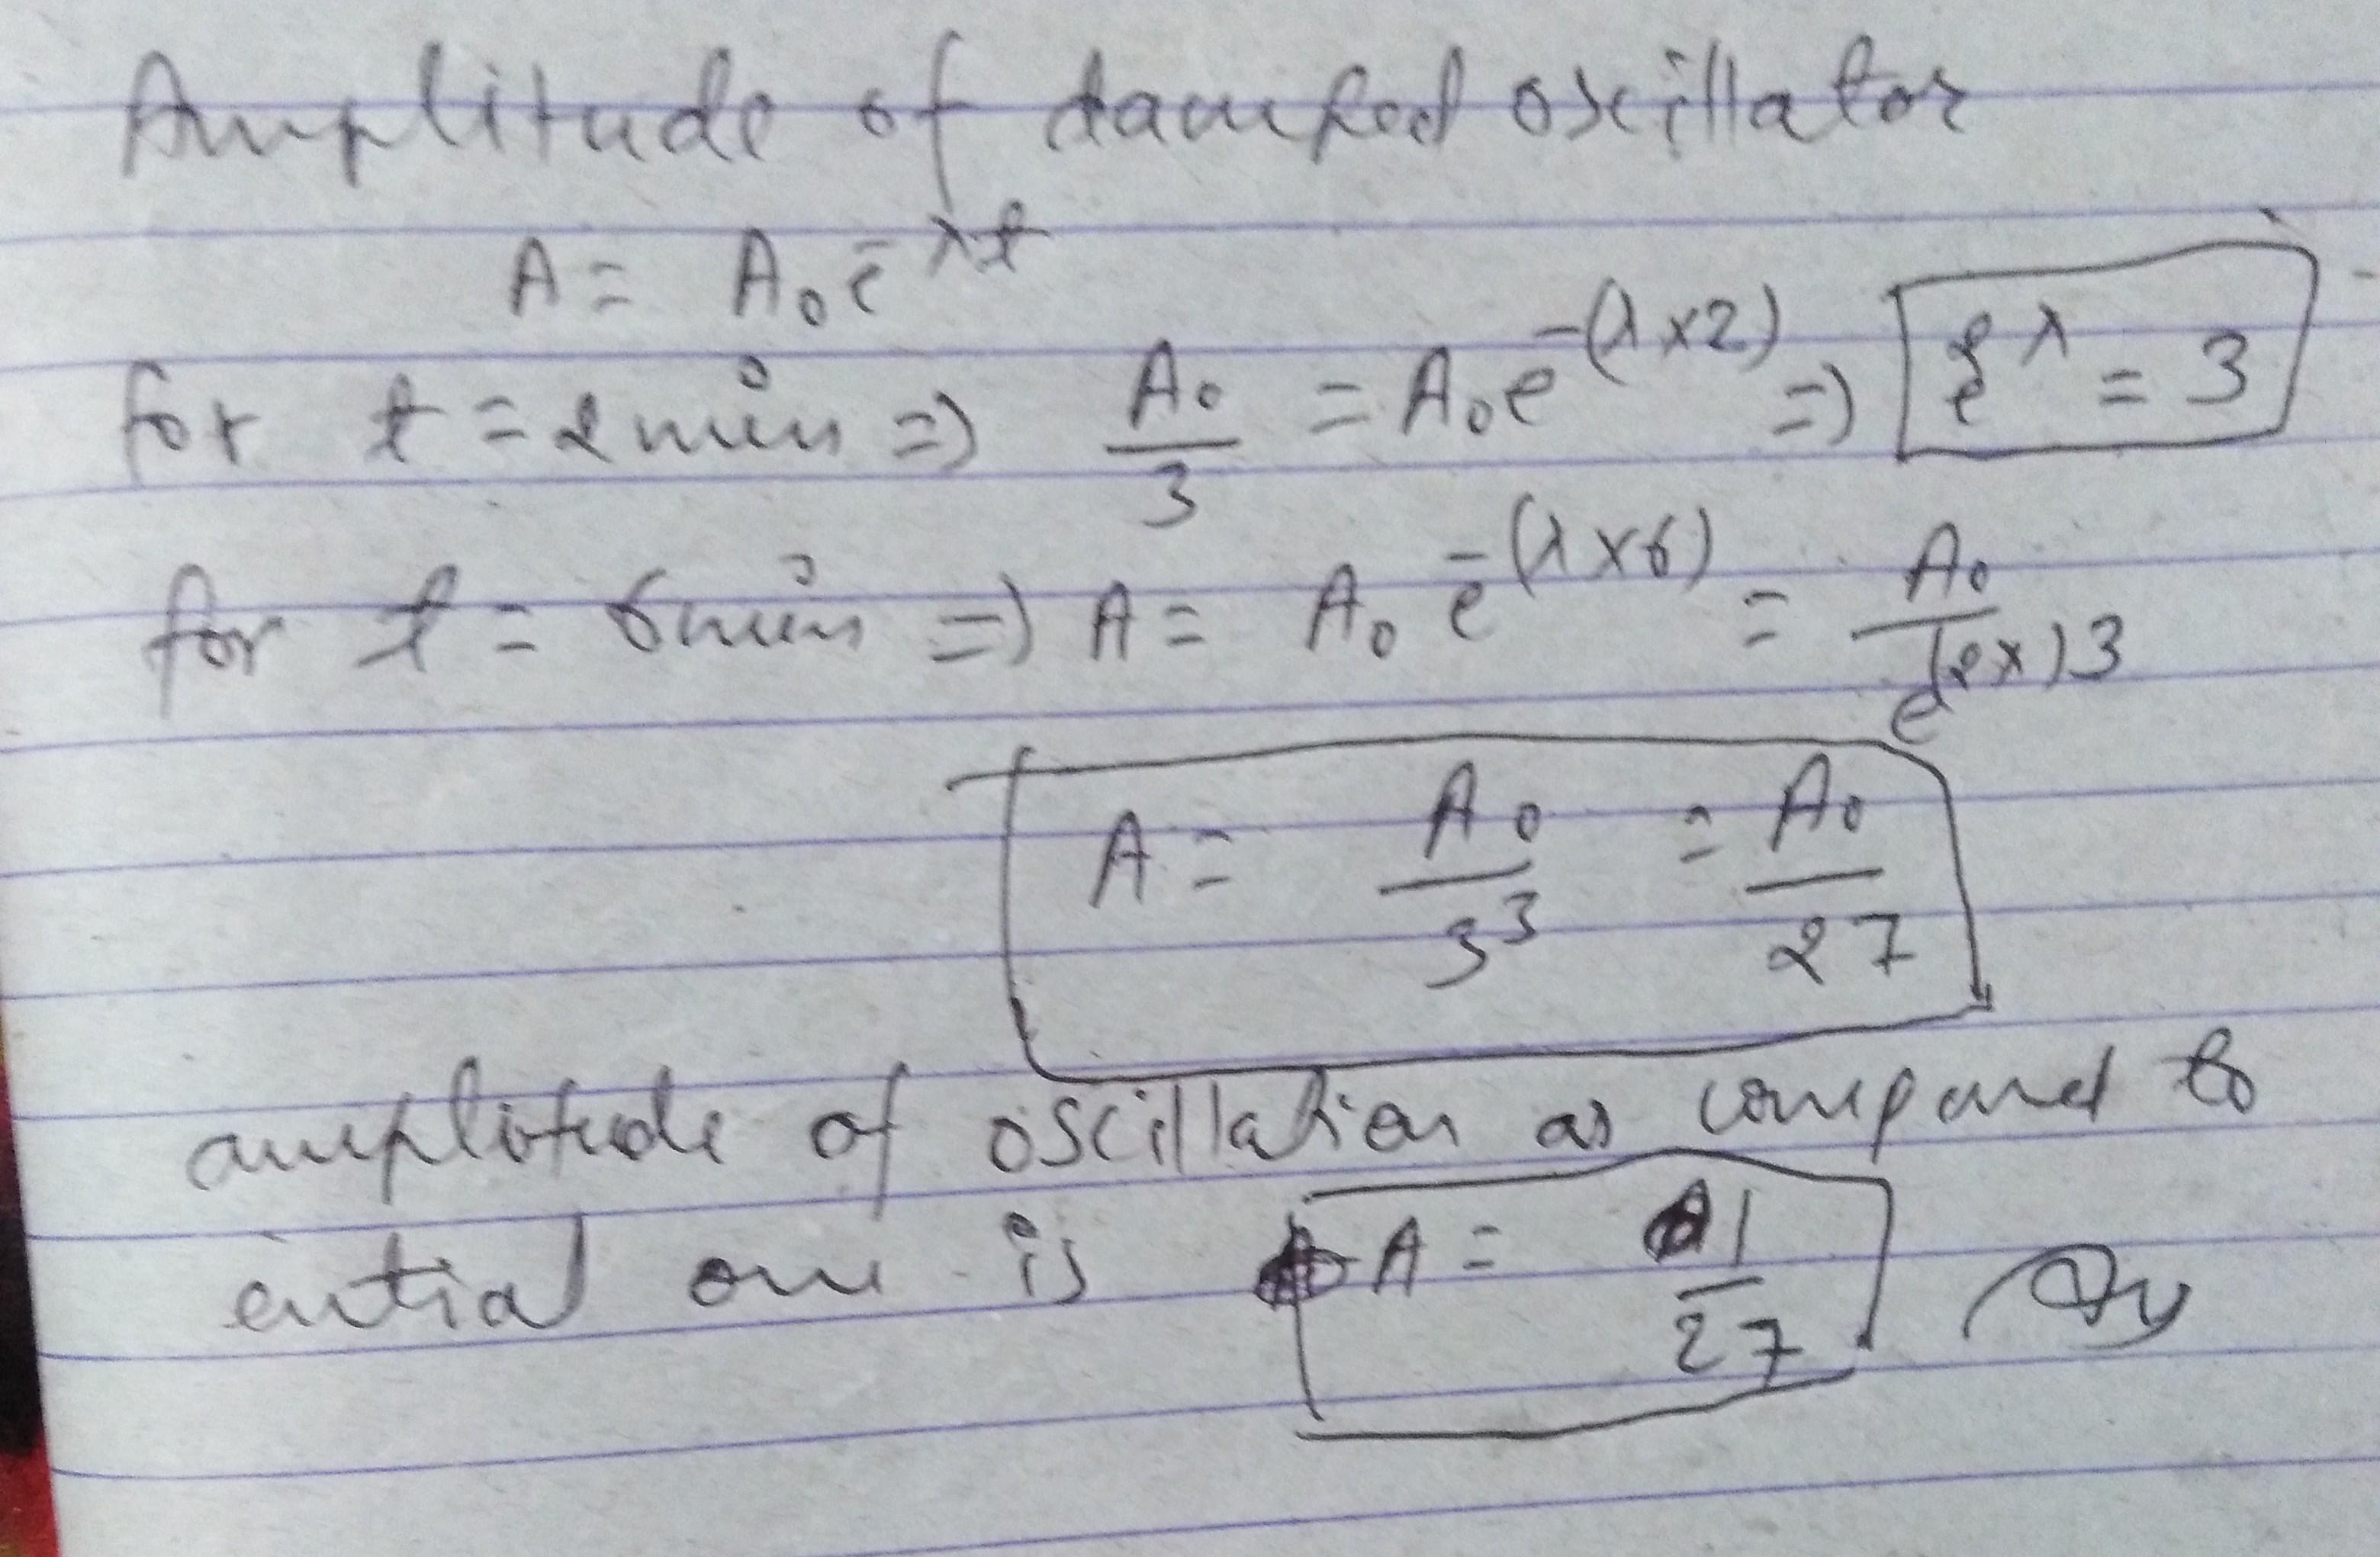 Amplitude of damped oscillator
A = A₀e^-λt
for t = 2 min => A₀/3 = A₀e^-(λ×2) => e^2λ = 3
for t = 6 min => A = A₀e^-(λ×6) = A₀/e^(2λ)3
A = A₀/3³ = A₀/27
amplitude of oscillation as compared to
initial one is A = 1/27